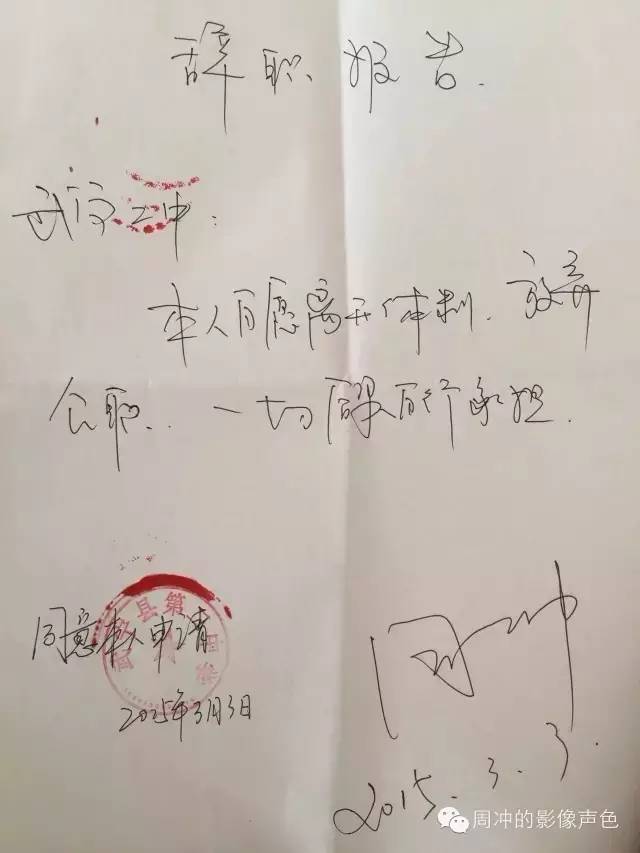 辞职报告.
武汉二中:
本人自愿离开体制、放弃
公职、一切后果自行承担.
县第
同意本人申请
2015年3月3日
周冲
2015.3.3.
周冲的影像声色